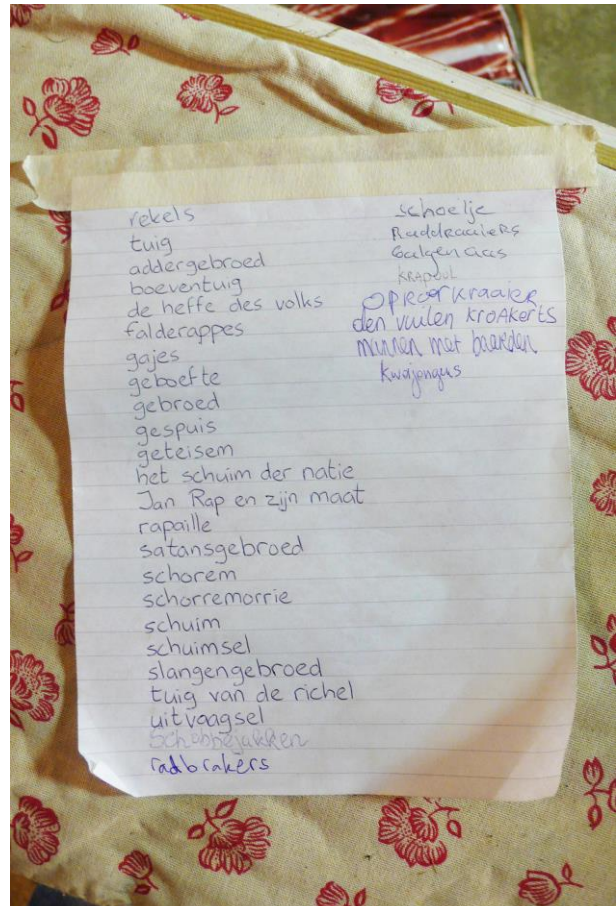 rekels
tuig
addergebroed
boeventuig
de heffe des volks
falderappes
gajes
geboefte
gebroed
gespuis
geteisem
het schuim der natie
Jan Rap en zijn maat
rapaille
satansgebroed
schorem
schorremorrie
schuim
schuimsel
slangengebroed
tuig van de richel
uitvaagsel
Schobbejakken
radbrakers
schoelje
Raddraaiers
Galgenaas
KRApuul
OPROERKraaier
den vuilen kroAkerts
mannen met baarden
kwajongus